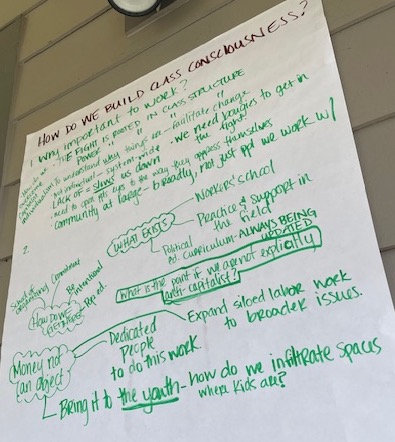 HOW DO WE BUILD CLASS CONSCIOUSNESS?
1 Why important to work?
THE FIGHT IS ROOTED IN CLASS STRUCTURE
POWER " " " "
To understand why things are - facilitate change
system-wide - we need bougies to get in
the fight
Lack of = slows us down
need to open ppl's eyes to the way they oppress themselves
Community at large - broadly, not just ppl we work w/
2.
WHAT EXISTS
Workers' school
Practice & support in
the field
Political
Ed. Curriculum - ALWAYS BEING
UPDATED
What is the point if we are not explicitly
anti-capitalist?
School of
organizing
Commitment
Be
Intentional
Pop. ed.
HOW DO WE
GET THERE
Money not
an object
Dedicated
People
to do this work.
Expand siloed labor work
to broader issues.
Bring it to the youth - how do we infiltrate spaces
where kids are?